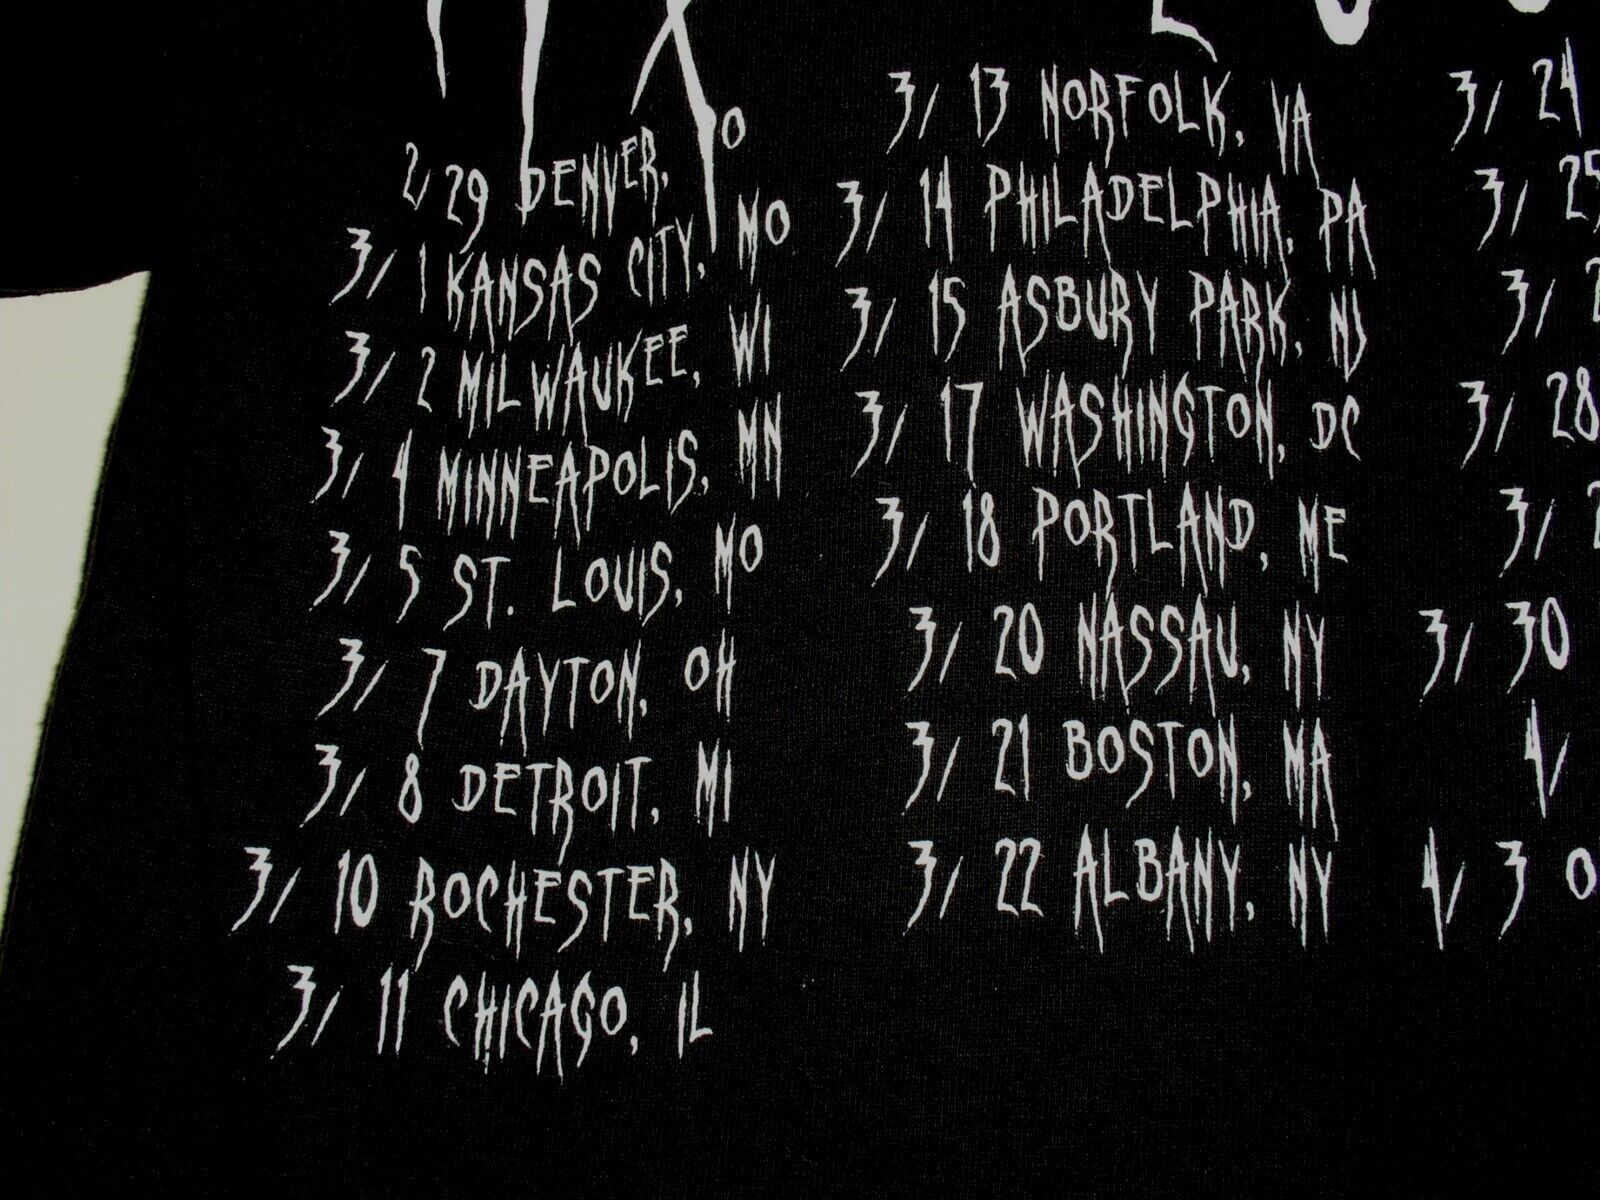 2/ 29 DENVER, O
3/ 1 KANSAS CITY, MO
3/ 2 MILWAUKEE, WI
3/ 4 MINNEAPOLIS, MN
3/ 5 ST. LOUIS, MO
3/ 7 DAYTON, OH
3/ 8 DETROIT, MI
3/ 10 ROCHESTER, NY
3/ 11 CHICAGO, IL
3/ 13 NORFOLK, VA
3/ 14 PHILADELPHIA, PA
3/ 15 ASBURY PARK, NJ
3/ 17 WASHINGTON, DC
3/ 18 PORTLAND, ME
3/ 20 NASSAU, NY
3/ 21 BOSTON, MA
3/ 22 ALBANY, NY
3/ 24
3/ 25
3/ 2
3/ 28
3/ 2
3/ 30
4/
4/ 3 O